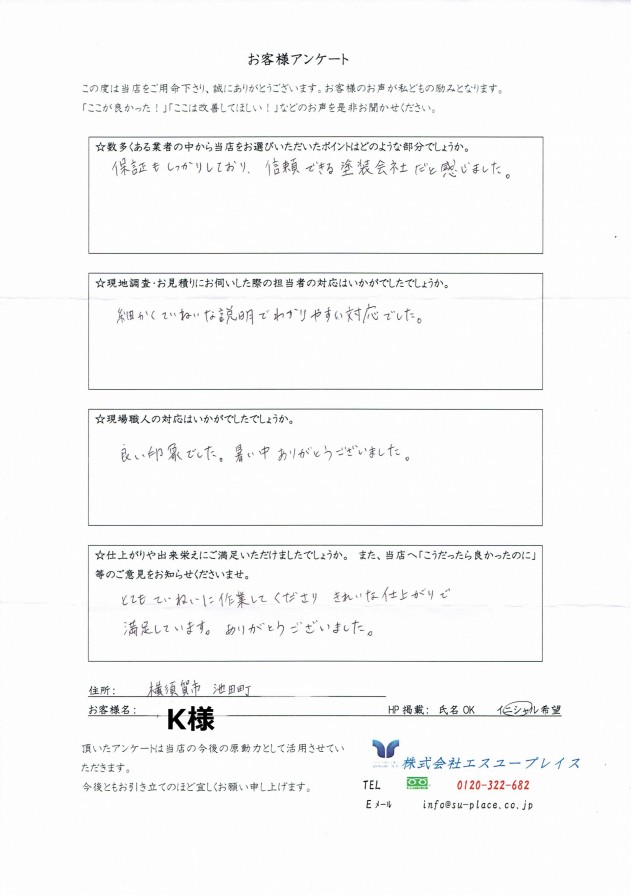 お客様アンケート
この度は当店をご用命下さり、誠にありがとうございます。お客様のお声が私どもの励みとなります。
「ここが良かった!」「ここは改善してほしい!」などのお声を是非お聞かせください。
☆数多くある業者の中から当店をお選びいただいたポイントはどのような部分でしょうか。
保証もしっかりしており、信頼できる塗装会社だと感じました。
☆現地調査・お見積りにお伺いした際の担当者の対応はいかがでしたでしょうか。
細かくていねいな説明でわかりやすい対応でした。
☆現場職人の対応はいかがでしたでしょうか。
良い印象でした。暑い中ありがとうございました。
☆仕上がりや出来栄えにご満足いただけましたでしょうか。 また、当店へ「こうだったら良かったのに」
等のご意見をお知らせくださいませ。
とてもていねいに作業してくださり きれいな仕上がりで
満足しています。ありがとうございました。
住所: 横須賀市 池田町
お客様名: K様 HP掲載: 氏名OK イニシャル希望
頂いたアンケートは当店の今後の原動力として活用させてい
ただきます。
今後ともお引き立てのほど宜しくお願い申し上げます。
株式会社エスユープレイス
TEL 0120-322-682
Eメール info@su-place.co.jp